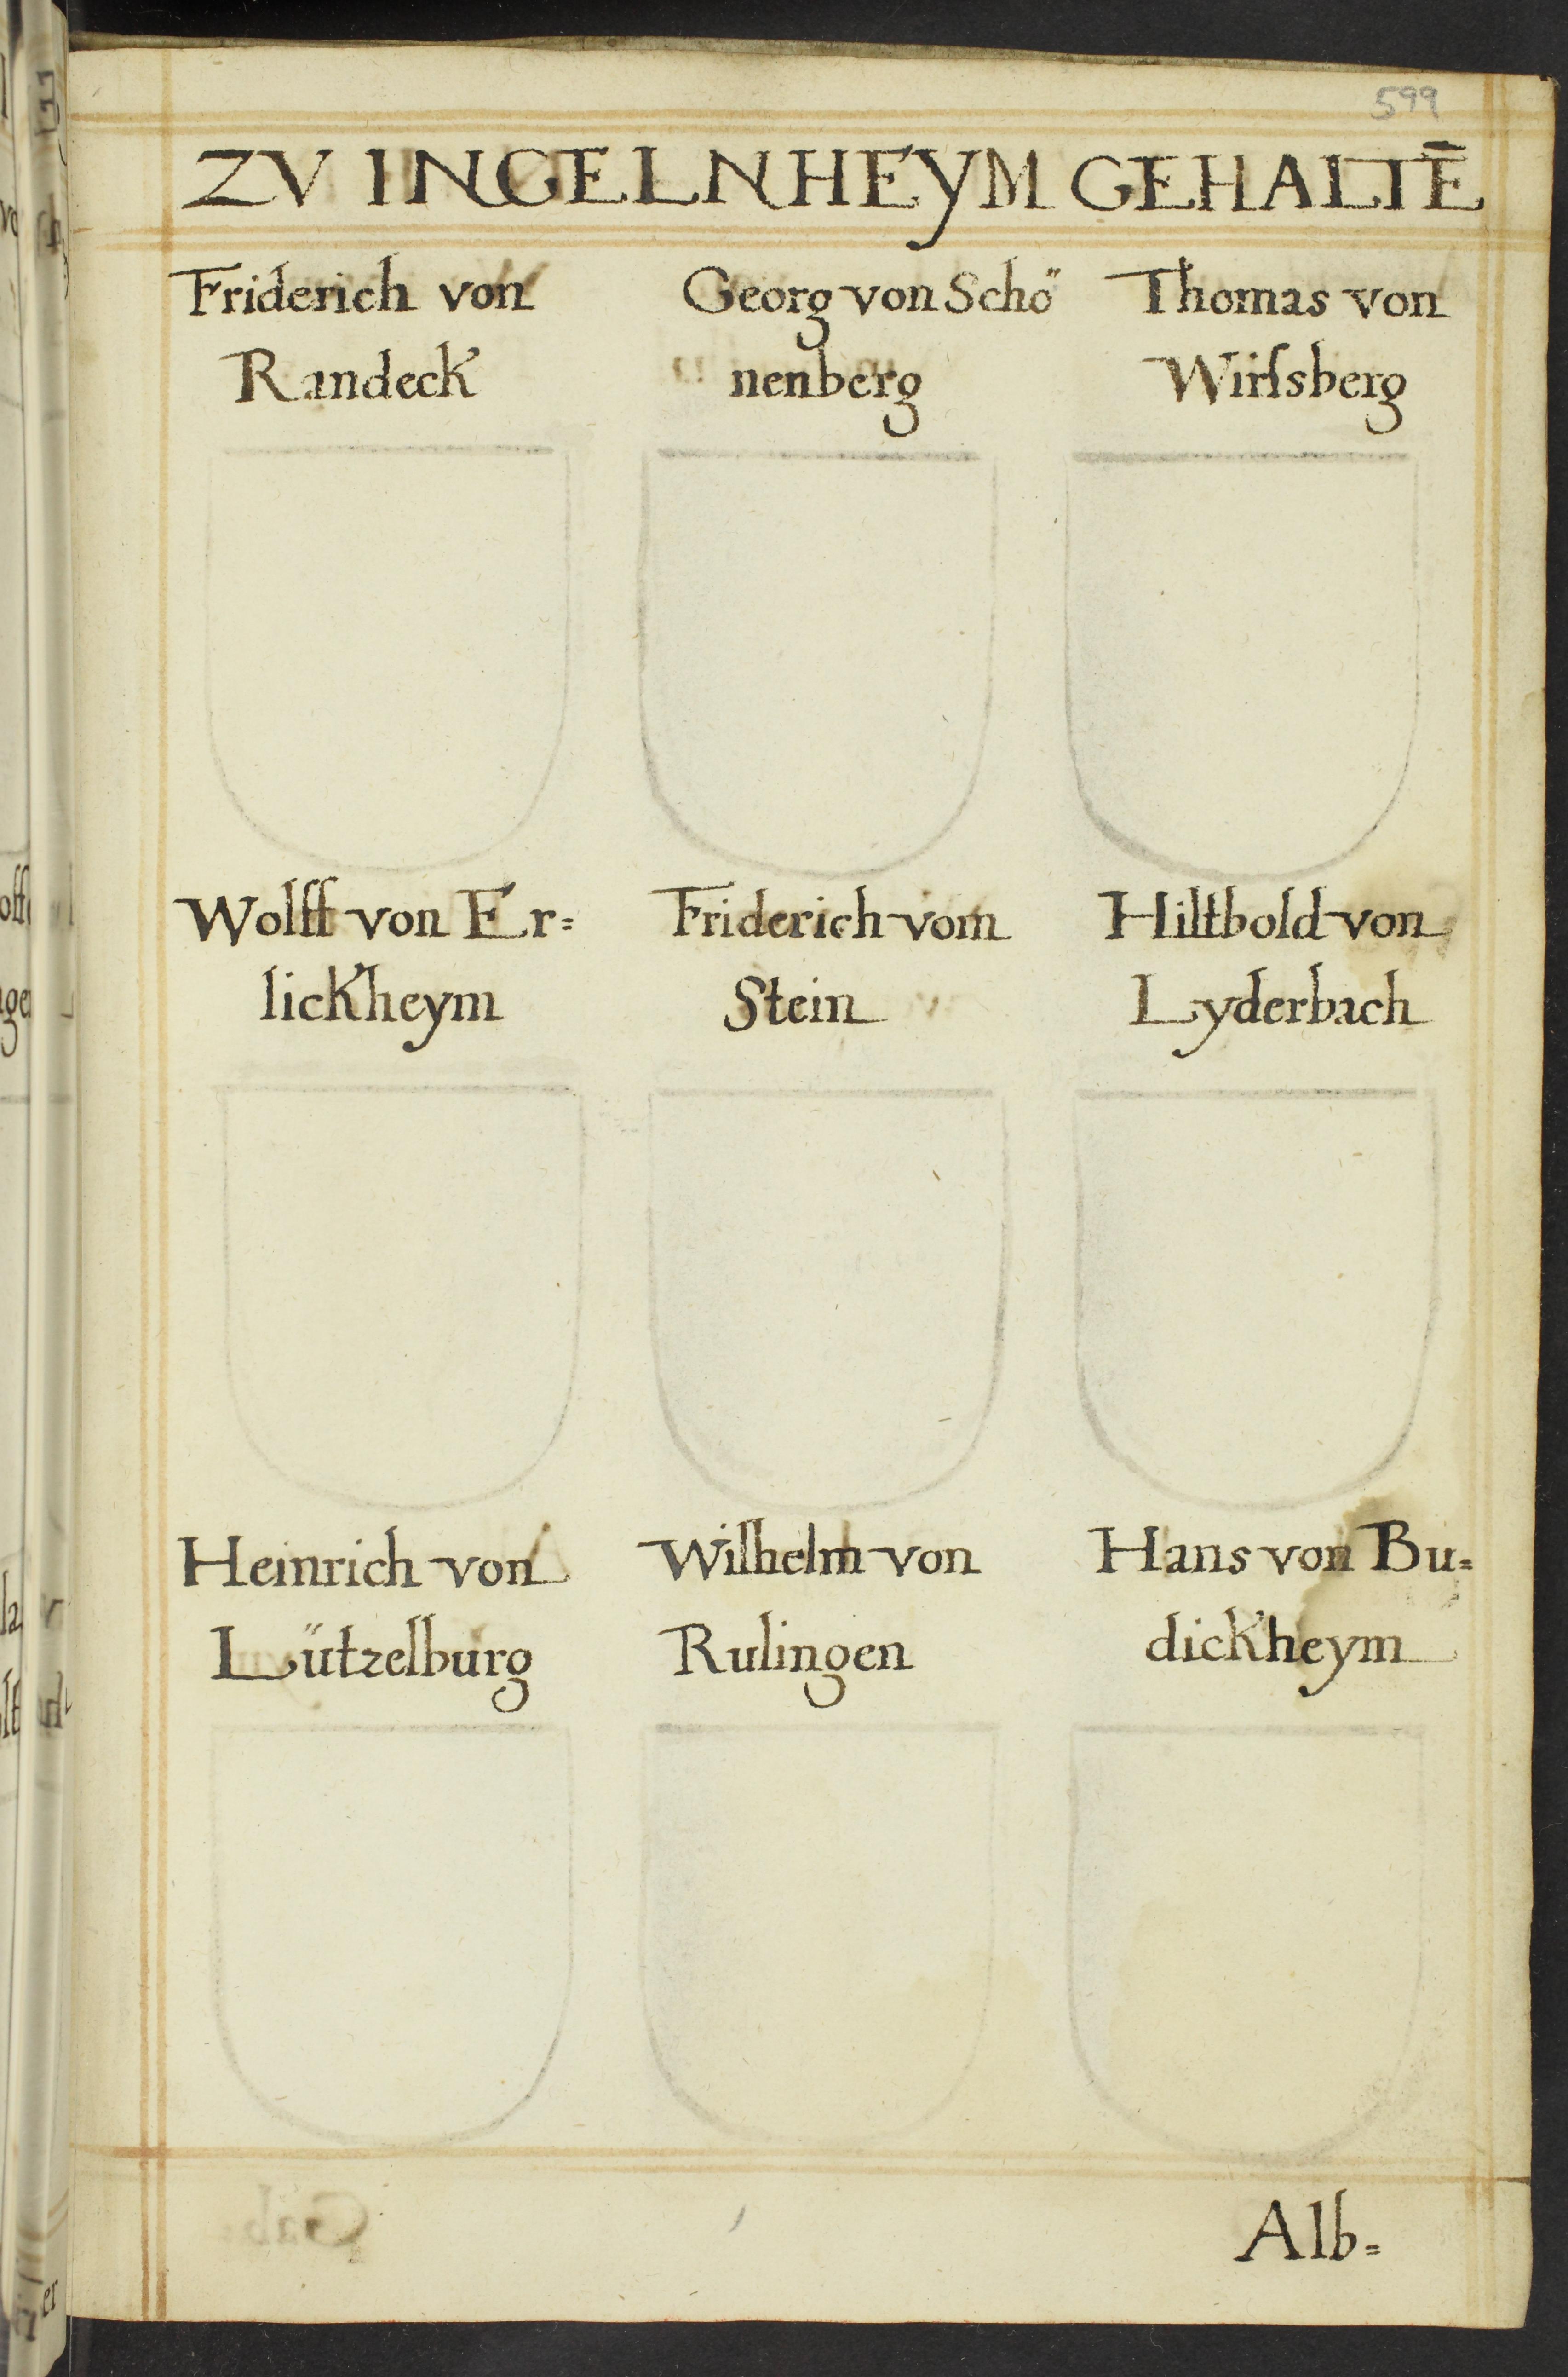 599
ZV INGELNHEYM GEHALTĒ
Friderich von
Randeck
Georg von Schö
nenberg
Thomas von
Wirſsberg
Wolff von Er=
lickheym
Friderich vom
Stein
Hiltbold von
Lyderbach
Heinrich von
Lützelburg
Wilhelm von
Rulingen
Hans von Bu=
dickheym
Alb=